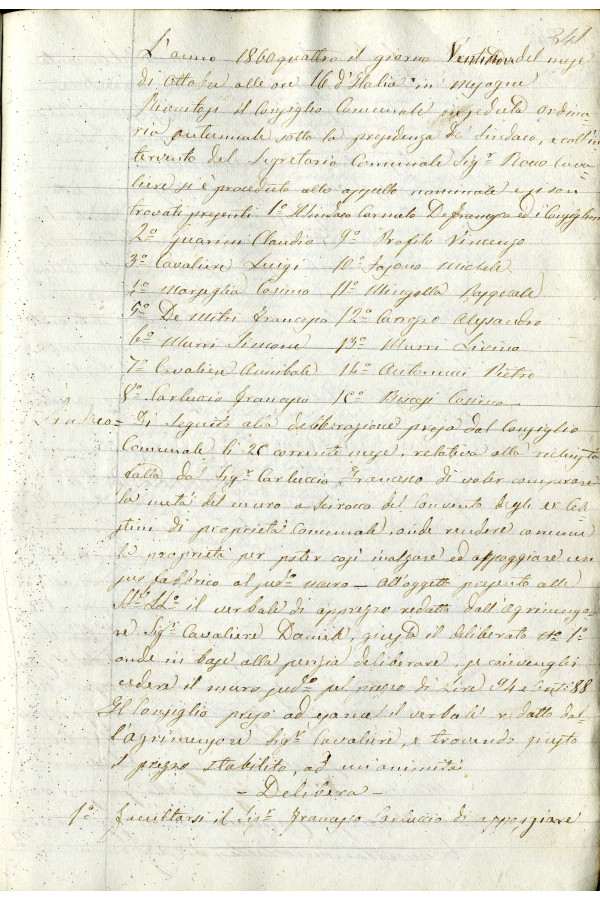 341
L'anno 1860quattro il giorno Ventinove del mese
di Ottobre alle ore 16 d'Italia in Mesagne
Riunitosi il Consiglio Comunale in seduta ordina
ria autunnale sotto la presidenza del Sindaco, e coll'in
tervento del Segretario Comunale Sigr Rocco Cava
liere si è proceduto allo appello nominale e si son
trovati presenti 1º Il Sindaco Carmelo Defrancesco ed i Consiglieri
2º Guarini Claudio 9º Profilo Vincenzo
3º Cavaliere Luigi 10º Fajano Michele
4º Marsiglia Cosimo 11º Mingolla Pasquale
5º De Mitri Francesco 12º Alessandro
6º Murri Simone 13º Murri Livino
7º Cavaliere Annibale 14º Antonucci Pietro
8º Carluccio Francesco 15º Cosimo
Sindaco = Di seguito alla deliberazione presa dal Consiglio
Comunale li 20 corrente mese, relativa alla richiesta
fatta dal Sigr Carluccio Francesco di voler comprare
la metà del muro a Scirocco del Convento degli ex Cele
stini di proprietà Comunale, onde rendere comune
la proprietà per poter così inalzare ed appoggiare un
suo fabbrico al suddo muro — All'oggetto presento alle
il verbale di apprezzo redatto dall'Agrimenso
re Sigr Cavaliere Daniele, giusta il deliberato Nº 1º
onde in base alla perizia deliberare, se convenghi
cedere il muro suddo pel prezzo di Lire 94 e Cent: 88
Il Consiglio preso ad esame il verbale redatto dal
l'agrimensore Sigr Cavaliere, e trovando giusto
il prezzo stabilito, ad unanimità
- Delibera -
1º facultarsi il Sigr Francesco Carluccio di appoggiare